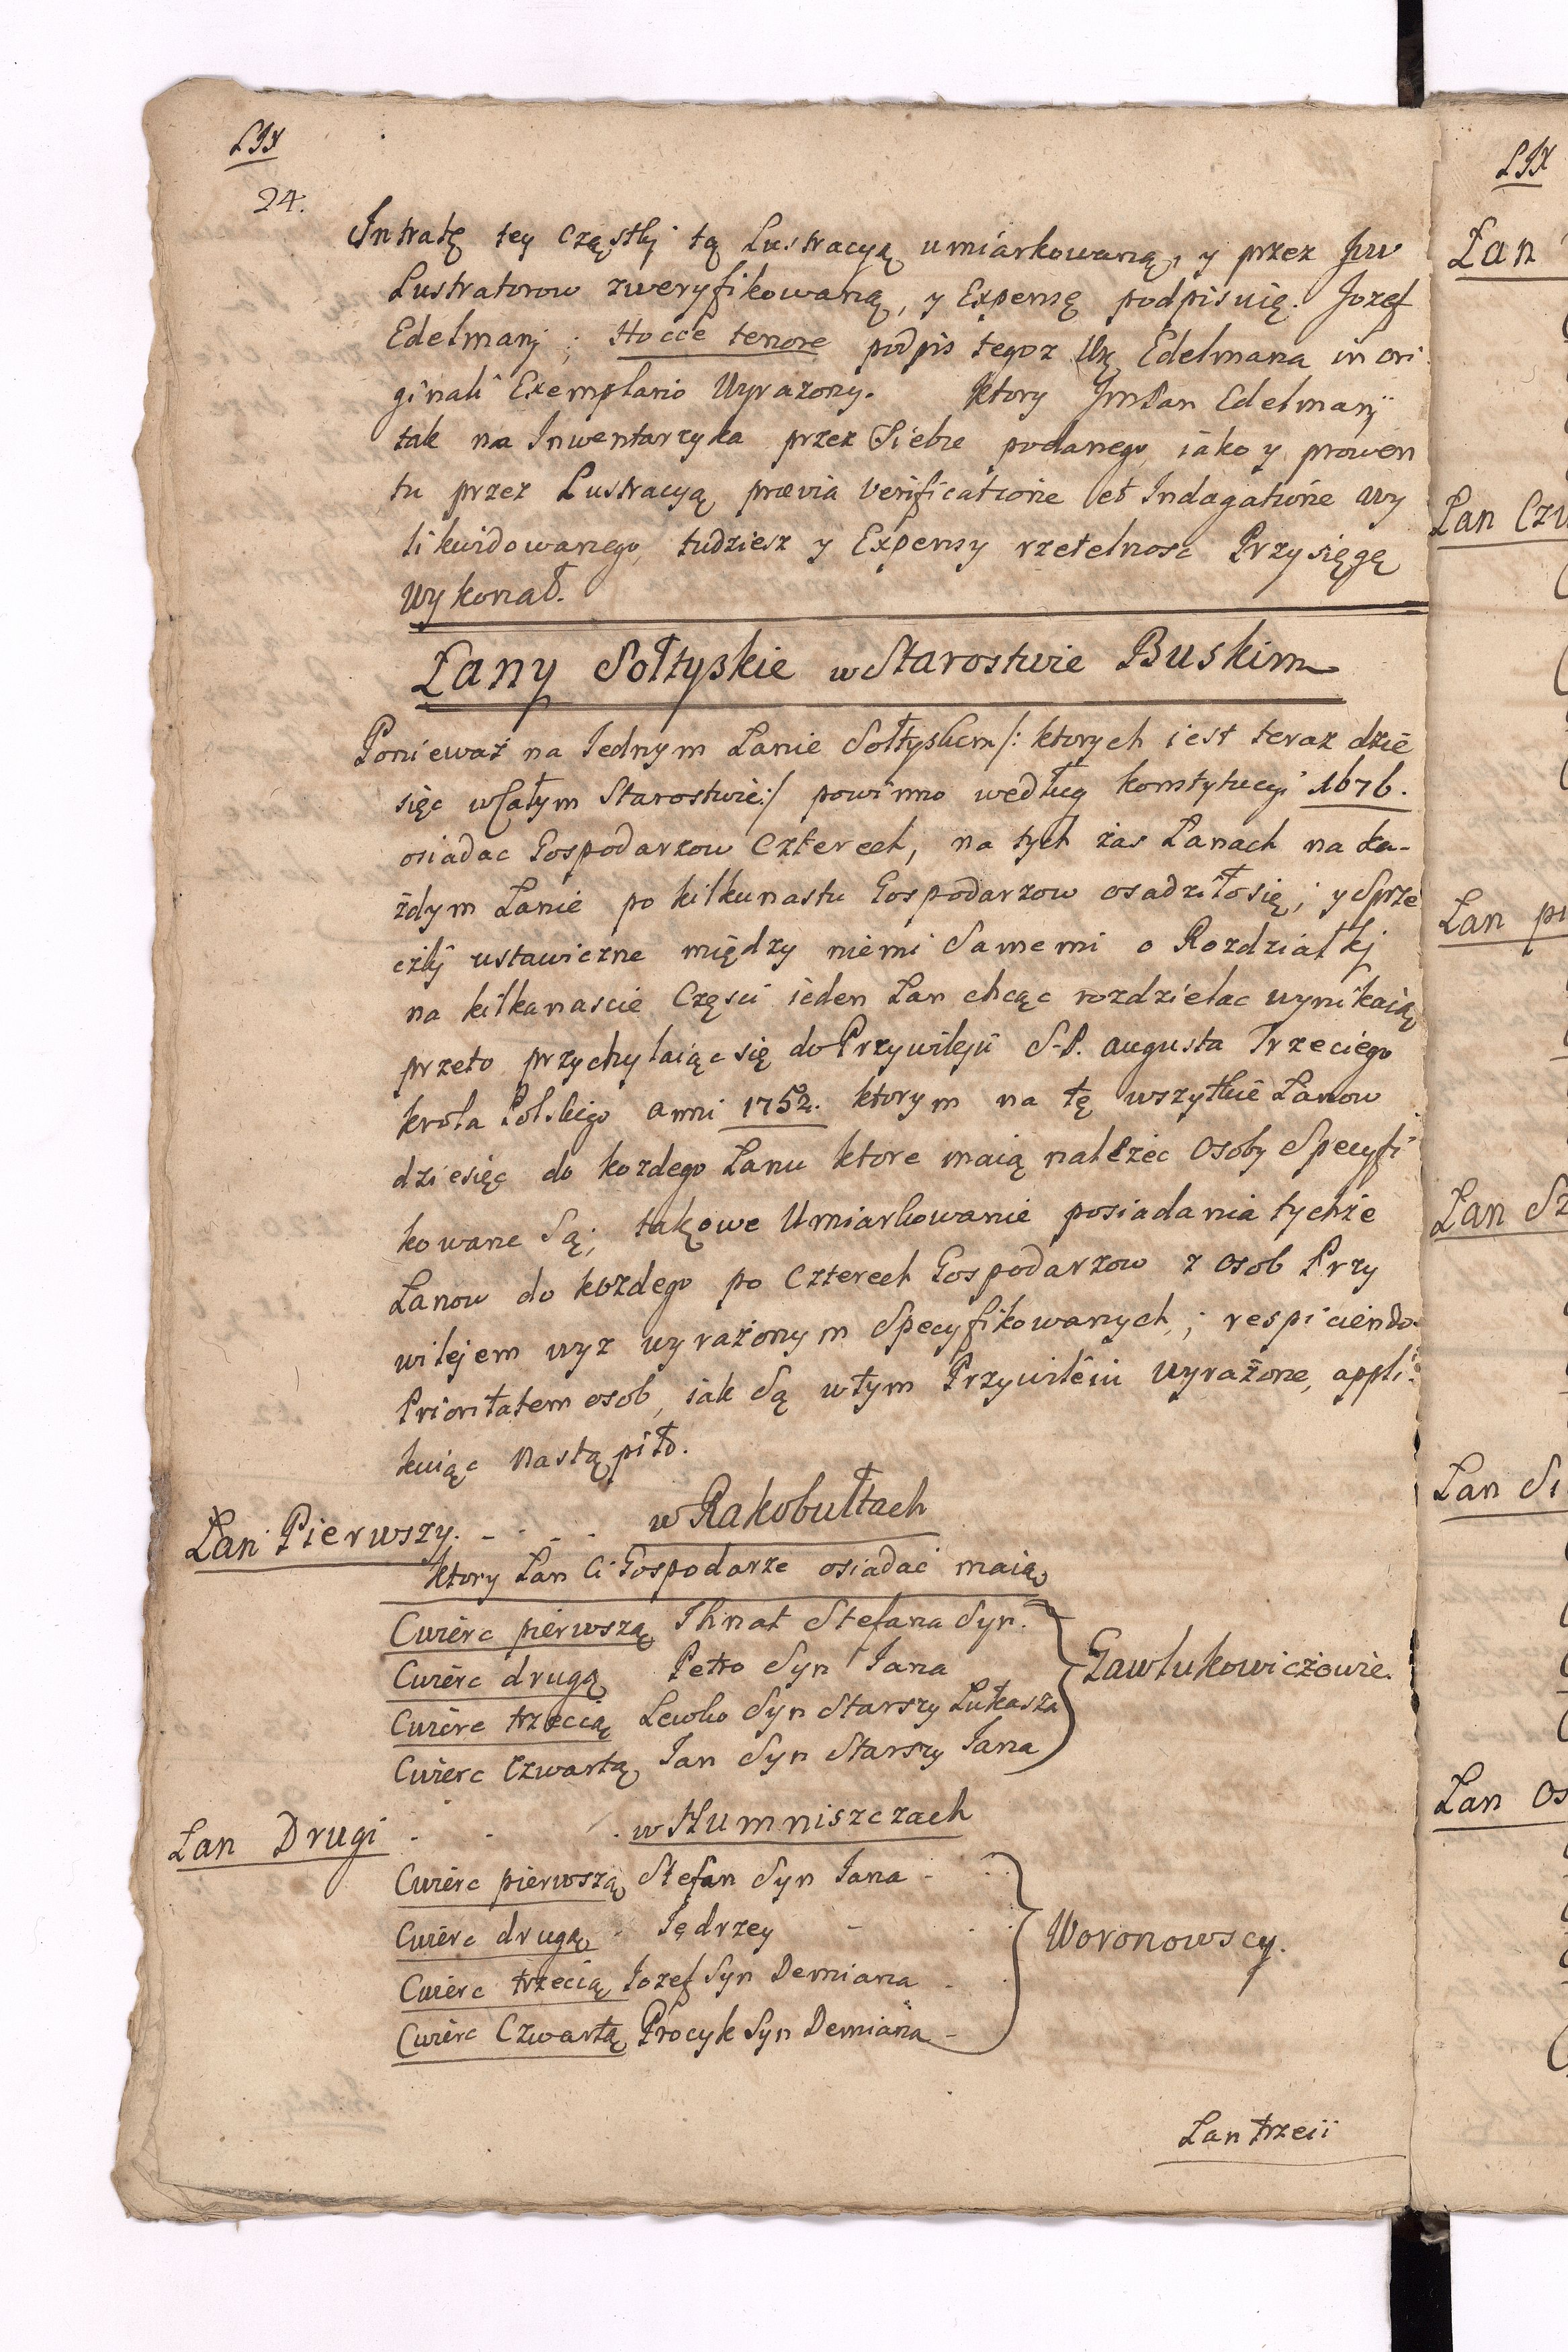 LIX
24.
Intratę tey Cząstki tą Lustracyą umiarkowaną, y przez Jww
Lustratorow zweryfikowaną, y Expensę podpisuię. Jozef
Edelmanj; Hocce tenore podpis tegoz Edelmana in ori
ginali Exemplario Wyrazony. ktory JmPan Edelmanj
tak na Inwentarzyka przez Siebie podanego, iako y prowen
tu przez Lustracyą prævia Verificatione et Indagatione wy
likwidowanego, tudziesz y Expensy rzetelnosc Przysięgę
wykonał.
Łany Sołtyskie w Starostwie Buskim
Ponieważ na Iednym Łanie Sołtyskim /: ktorych iest teraz dzie
sięc w Całym Starostwie :/ powinno według konstytucyi 1676.
osiadac Gospodarzow Czterech, na tych zas Łanach na ka-
żdym Łanie po kilkunastu Gospodarzow osadziło się; y Sprze
czki ustawiczne między niemi Samemi o Rozdziałkj
na kilkanascie Częsci ieden Łan chcąc rozdzielac wynikaią
przeto przychylaiąc się do Przywileju S.P. augusta Trzeciego
krola Polskiego anni 1752. ktorym na tę wszytkie Łanow
dziesięc do kozdego Łanu ktore maią należec Osoby Specyfi
kowane Są; takowe Umiarkowanie posiadania tychże
Łanow do kozdego po Czterech Gospodarzow z osob Przy
wilejem wyz wyrażonym Specyfikowanych; respiciendo
Prioritatem osob, iak Są w tym Przywileiu wyrażone, appli
kuiąc Nastąpiło.
Łan Pierwszy. - - - - w Rakobułtach
ktory Łan Ci Gospodarze osiadać maią
Cwierc pierwszą Ihnat Stefana Syn.
Cwierc drugą Petro Syn Jana
Gawlukowiczowie.
Cwierc trzecią Lewko Syn Starszy Łukasza
Cwierc Czwartą Jan Syn Starszy Jana
Łan Drugi - - - w Humniszczach
Cwierc pierwszą Stefan Syn Jana -
Cwierc drugą Jędrzey -
Woronowscy.
Cwierc trzecią Jozef Syn Demiana -
Cwierc Czwartą Procyk Syn Demiana -
Łan trzeii
LIX
Łan
Łan Czw
Łan pi
Łan Sz
Łan Si
Łan Os